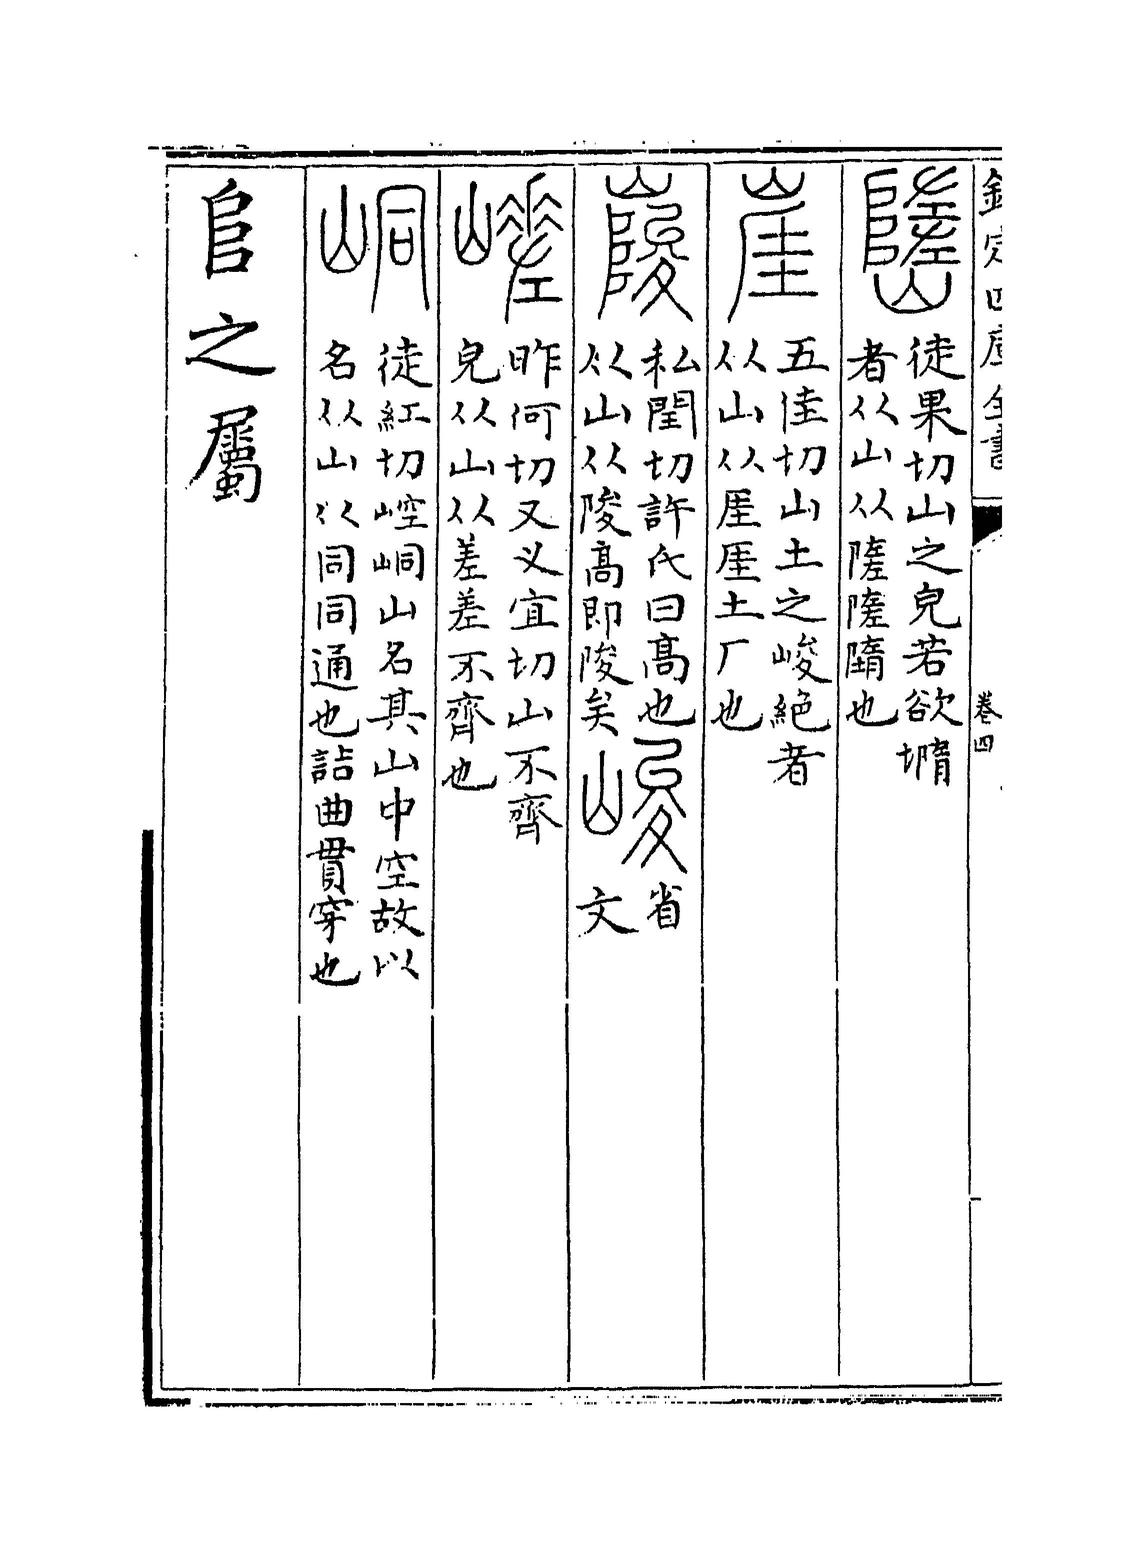 欽定四庫全書 卷四
嶞
徒果切山之皃若欲堶
者从山从隓隓隋也
崖
五佳切山土之峻絶者
从山从厓厓土厂也
私閏切許氏曰高也
从山从陖高即陖矣
峻
省
文
嵯
昨何切又义宜切山不齊
皃从山从差差不齊也
峒
徒紅切崆峒山名其山中空故以
名从山从同同通也詰曲貫穿也
𨸏之屬